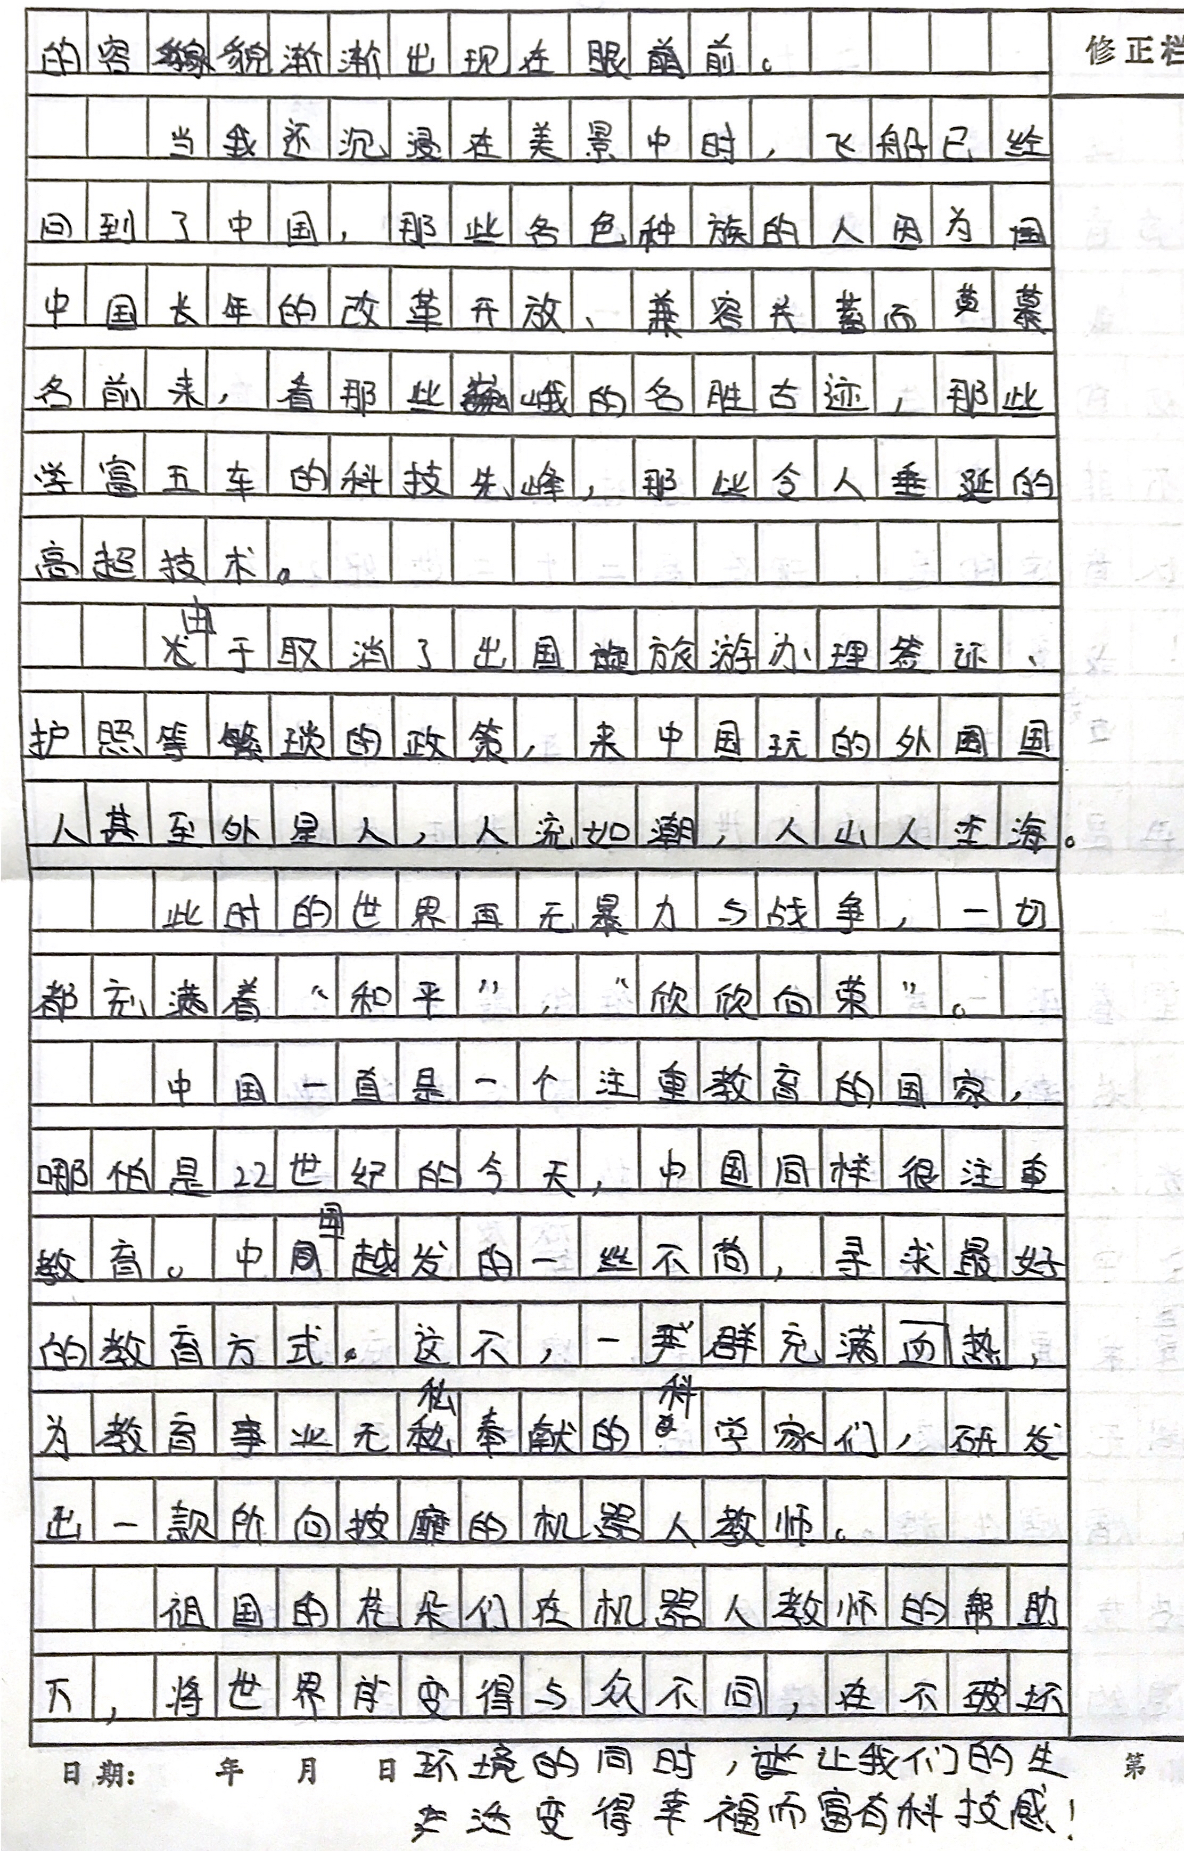 的容貌渐渐出现在眼前。
修正栏
当我还沉浸在美景中时，飞船已经
回到了中国，那些各色种族的人因为
中国长年的改革开放、兼容关蓄而慕
名前来，看那些巍峨的名胜古迹，那些
学富五车的科技先峰，那些令人垂涎的
高超技术。
由于取消了出国旅游办理签证、
护照等繁琐的政策，来中国玩的外国
人甚至外星人，人流如潮，人山人海。
此时的世界再无暴力与战争，一切
都充满着“和平”，“欣欣向荣”。
中国一直是一个注重教育的国家，
哪怕是22世纪的今天，中国同样很注重
教育。中国越发的一丝不苟，寻求最好
的教育方式。这不，一群充满血热，
为教育事业无私奉献的科学家们，研发
出一款所向披靡的机器人教师。
祖国的花朵们在机器人教师的帮助
下，将世界变得与众不同，在不破坏
日期： 年 月 日
环境的同时，让我们的生
第
活变得幸福而富有科技感！